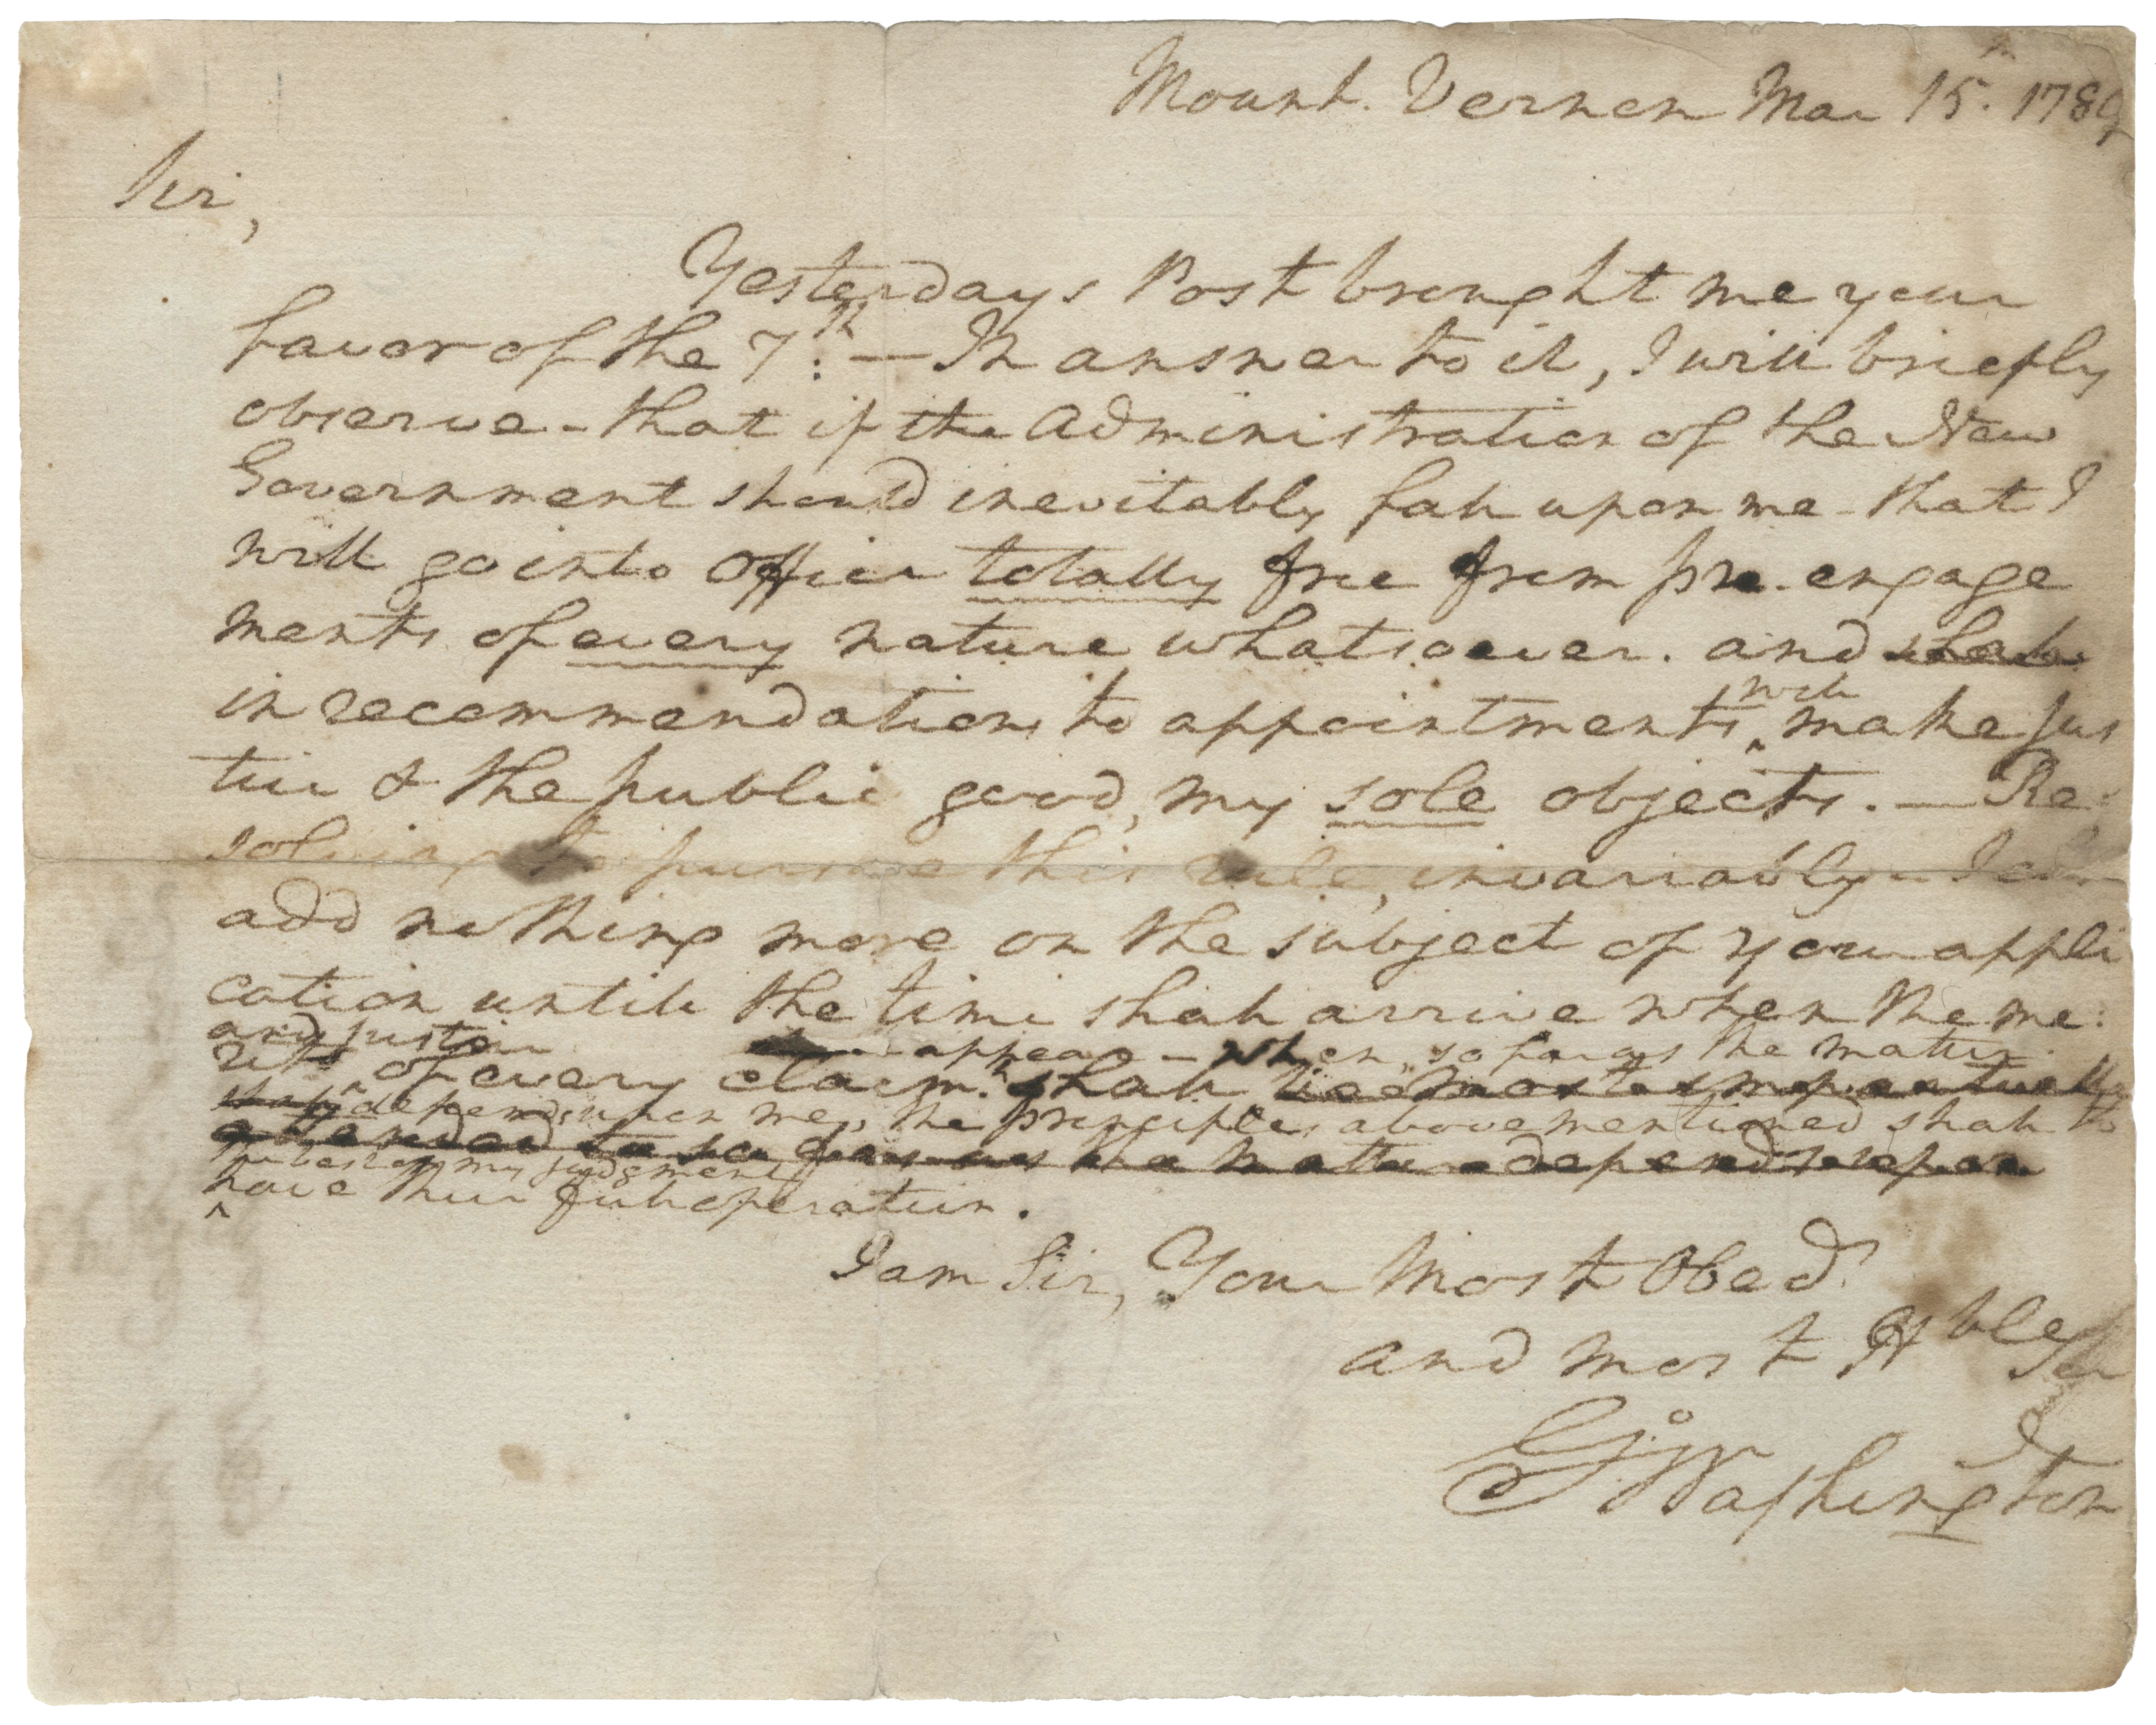 Mount. Vernon Mar 15th. 1789
Sir,
Yesterdays Post brought me your
favor of the 7th: — In answer to it, I will briefly
observe - that if the Administration of the New
Government should inevitably fall upon me - that I
will go into Office totally free from pre-engage
ments of every nature whatsoever. and shall
in recommendations to appointments wch make jus
tice & the public good, my sole objects. — Re-
solving to pursue this rule, invariably - I
add nothing more on the subject of your appli
cation untill the time shall arrive when the me:
and justice
rits of every claim shall
appear - when, so far as the matter
depends upon me, the principles abovementioned shall to
attended to so far as the matter depends upon
the best of my judgment
have their full operation.
I am Sir, Your Most Obedt
and most Hble Ser
Go: Washington